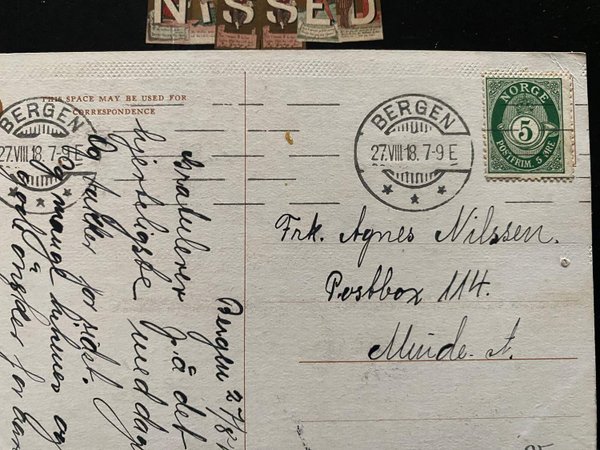 NISSED
THIS SPACE MAY BE USED FOR
CORRESPONDENCE
BERGEN
27.VIII 18. 7-9 E
BERGEN
27.VIII 18. 7-9 E
NORGE
5
POSTFRIM. 5 ØRE
Frk. Agnes Nilssen.
Postbox 114.
Minde st.
Bergen 27/8
Gratulerer på det
hjerteligste med dagen
Og takker for sidst.
Og mange hilsner og